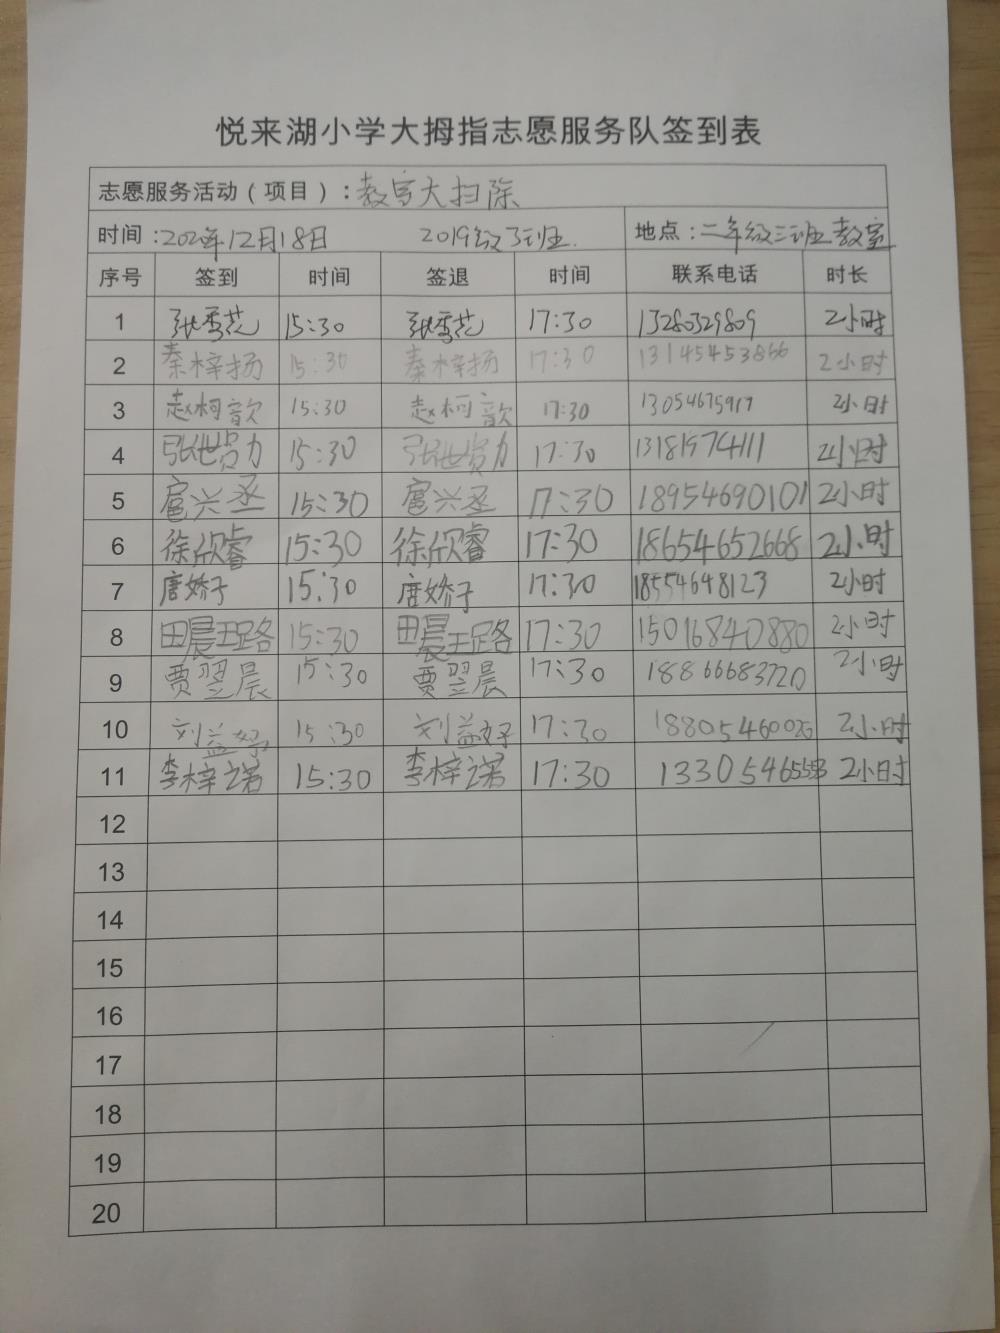 悦来湖小学大拇指志愿服务队签到表
志愿服务活动（项目）：教室大扫除
时间：2020年12月18日 2019级3班. 地点：二年级三班教室
序号 签到 时间 签退 时间 联系电话 时长
1 张秀芝 15:30 张秀芝 17:30 13280329809 2小时
2 秦梓扬 15:30 秦梓扬 17:30 13145453866 2小时
3 赵柯歆 15:30 赵柯歆 17:30 13054675917 2小时
4 张世贤力 15:30 张世贤力 17:30 13181974111 2小时
5 扈兴丞 15:30 扈兴丞 17:30 18954690101 2小时
6 徐欣睿 15:30 徐欣睿 17:30 18654652668 2小时
7 唐娇子 15:30 唐娇子 17:30 18554648123 2小时
8 田晨璐 15:30 田晨璐 17:30 15016840880 2小时
9 贾翌晨 15:30 贾翌晨 17:30 18866683720 2小时
10 刘益好 15:30 刘益好 17:30 18805460026 2小时
11 李梓诺 15:30 李梓诺 17:30 13305465558 2小时
12
13
14
15
16
17
18
19
20